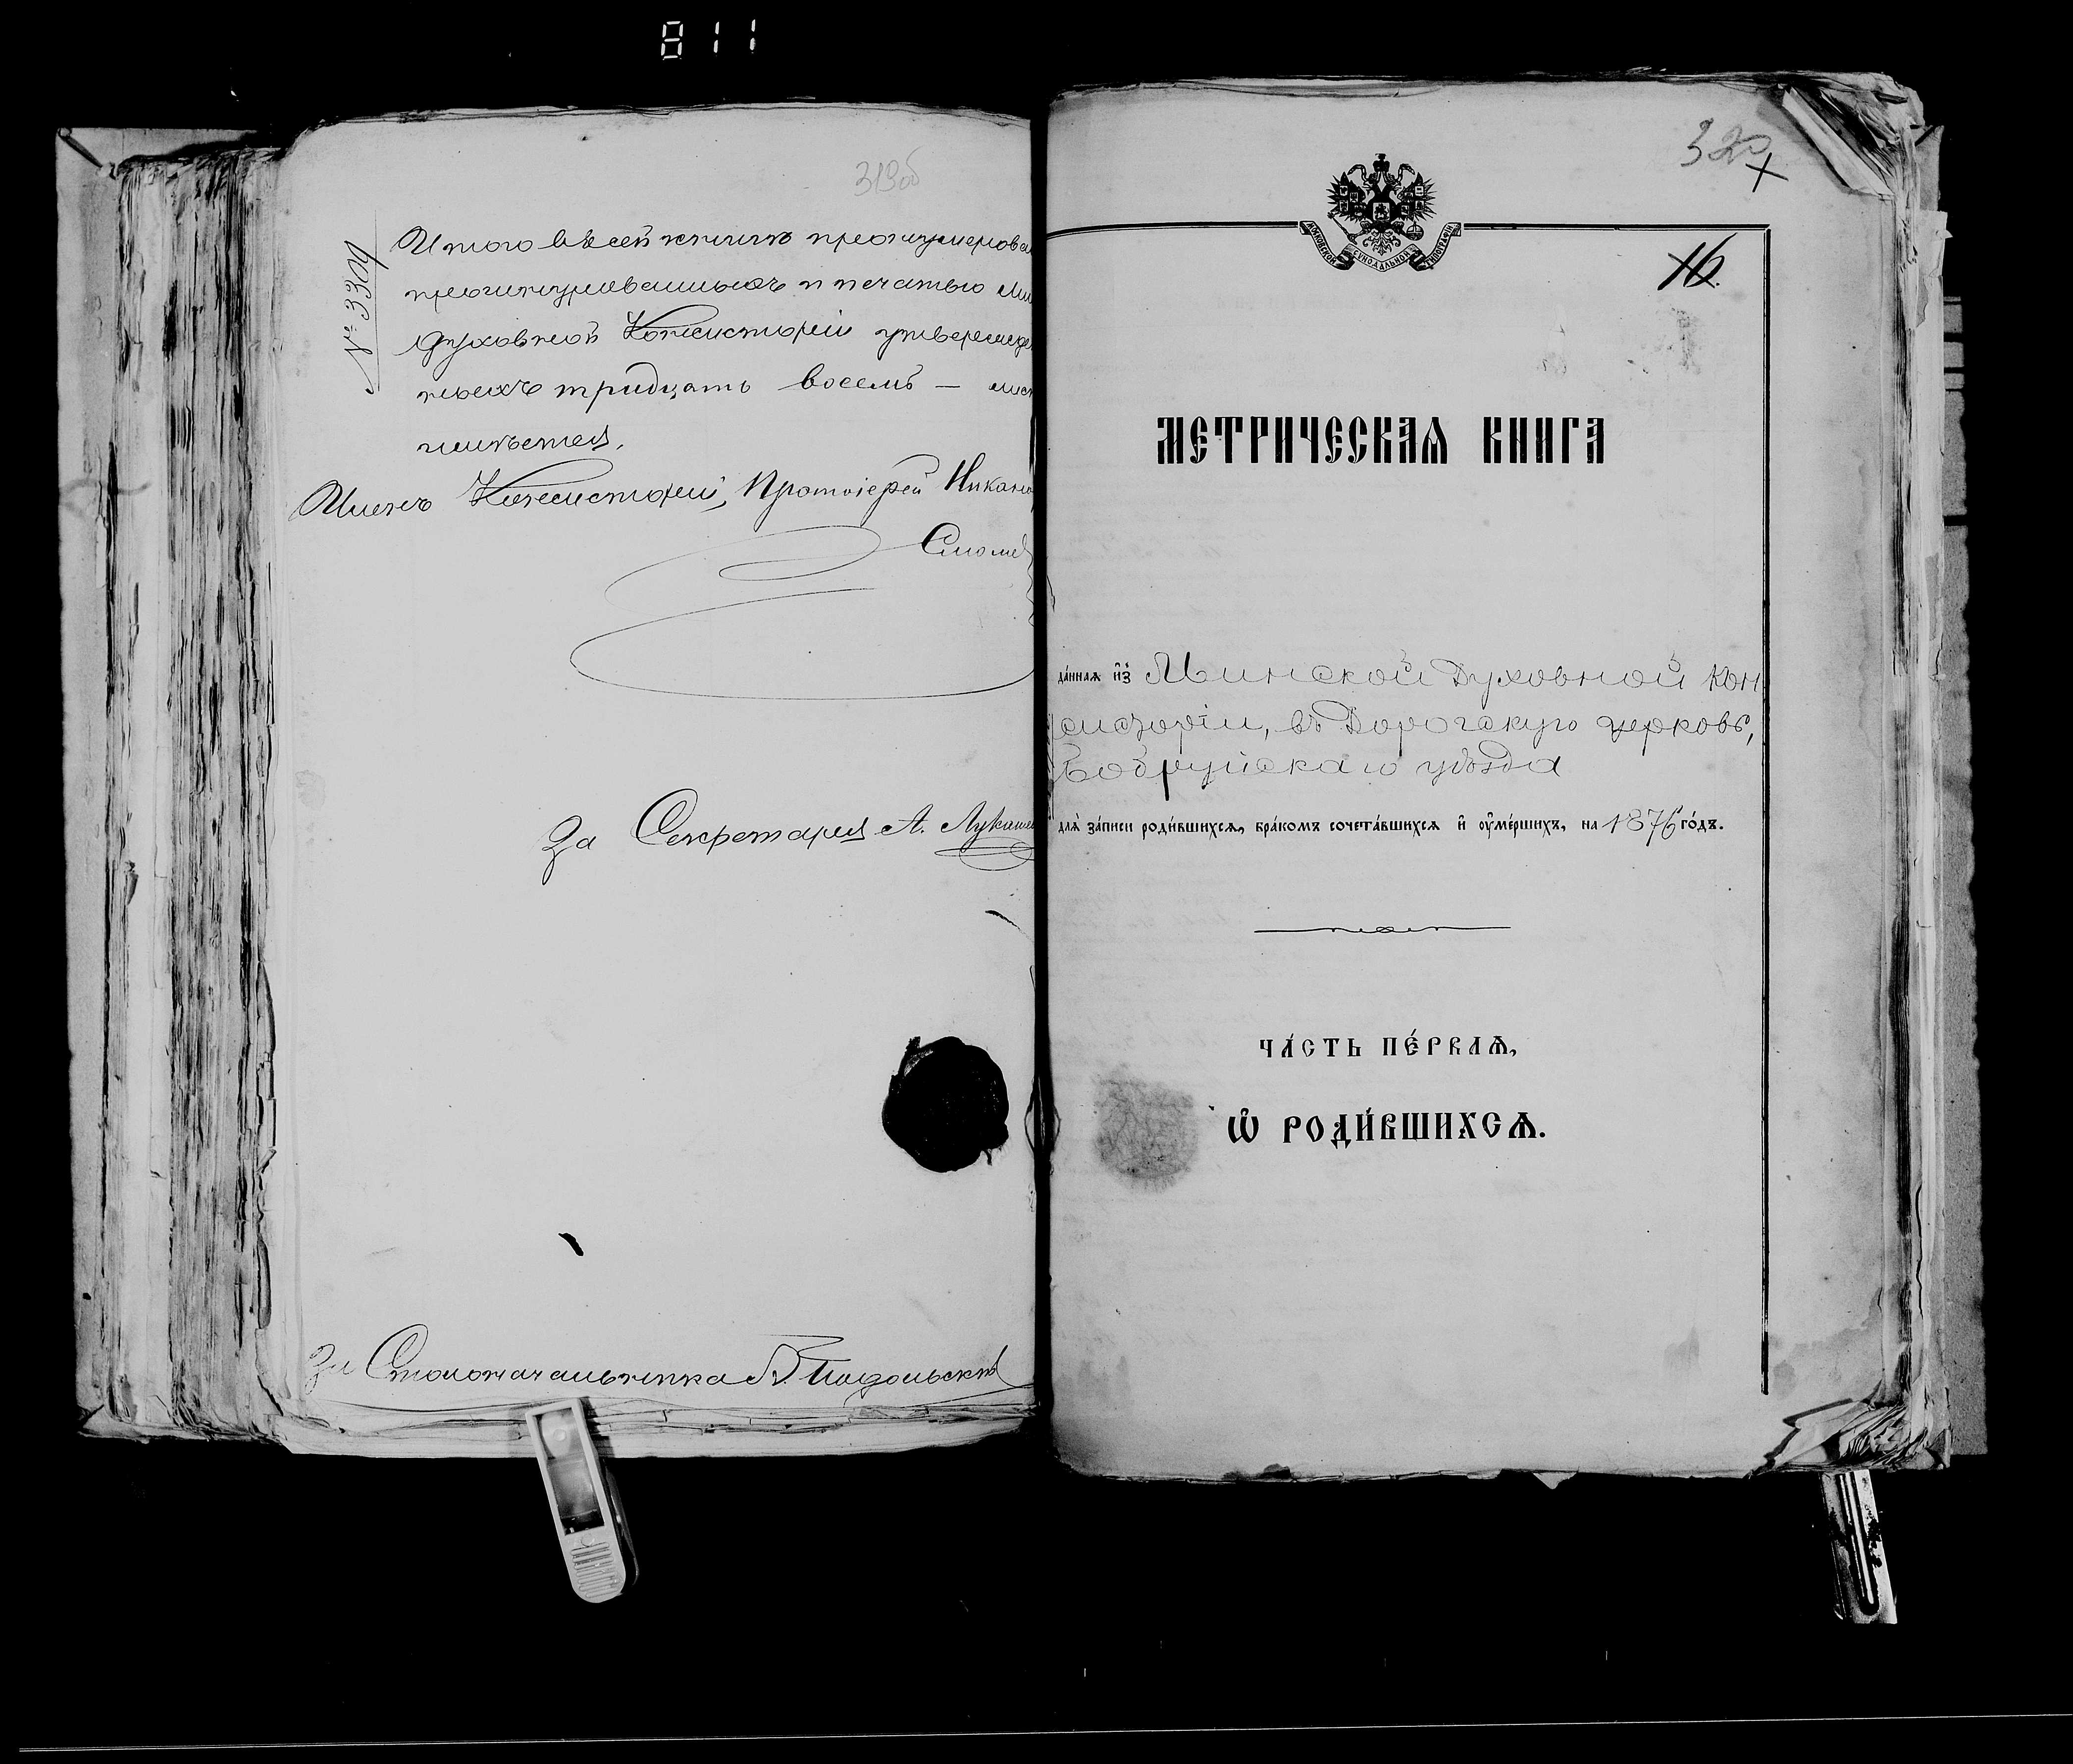 811
319об
№ 3309
Итого въ сей книгѣ пронумерова
прошнурованныхъ и печатью Ми
Духовной Консисторіи утвержде
ныхъ тридцать восемь — лист
имѣется.
Членъ Консисторіи, Протоіерей Никано
За Секретаря А. Лукаше
За Столоначальника Подольскій
320
16.
МОСКОВСКОЙ СѴНОДАЛЬНОЙ ТИПОГРАФІИ
МЕТРИЧЕСКАѦ КНИГА
да́ннаѧ и҆з̾ Минской Духовной Кон
систоріи, въ Дорогскую церковь,
Бобруйскаго уѣзда
длѧ̀ за́писи роди́вшихсѧ, бра́комъ сочета́вшихсѧ и҆ ᲂу҆ме́ршихъ, на 1876 го́дъ.
ЧА́СТЬ ПЕ́РВАѦ,
Ѡ҆ РОДИ́ВШИХСѦ.